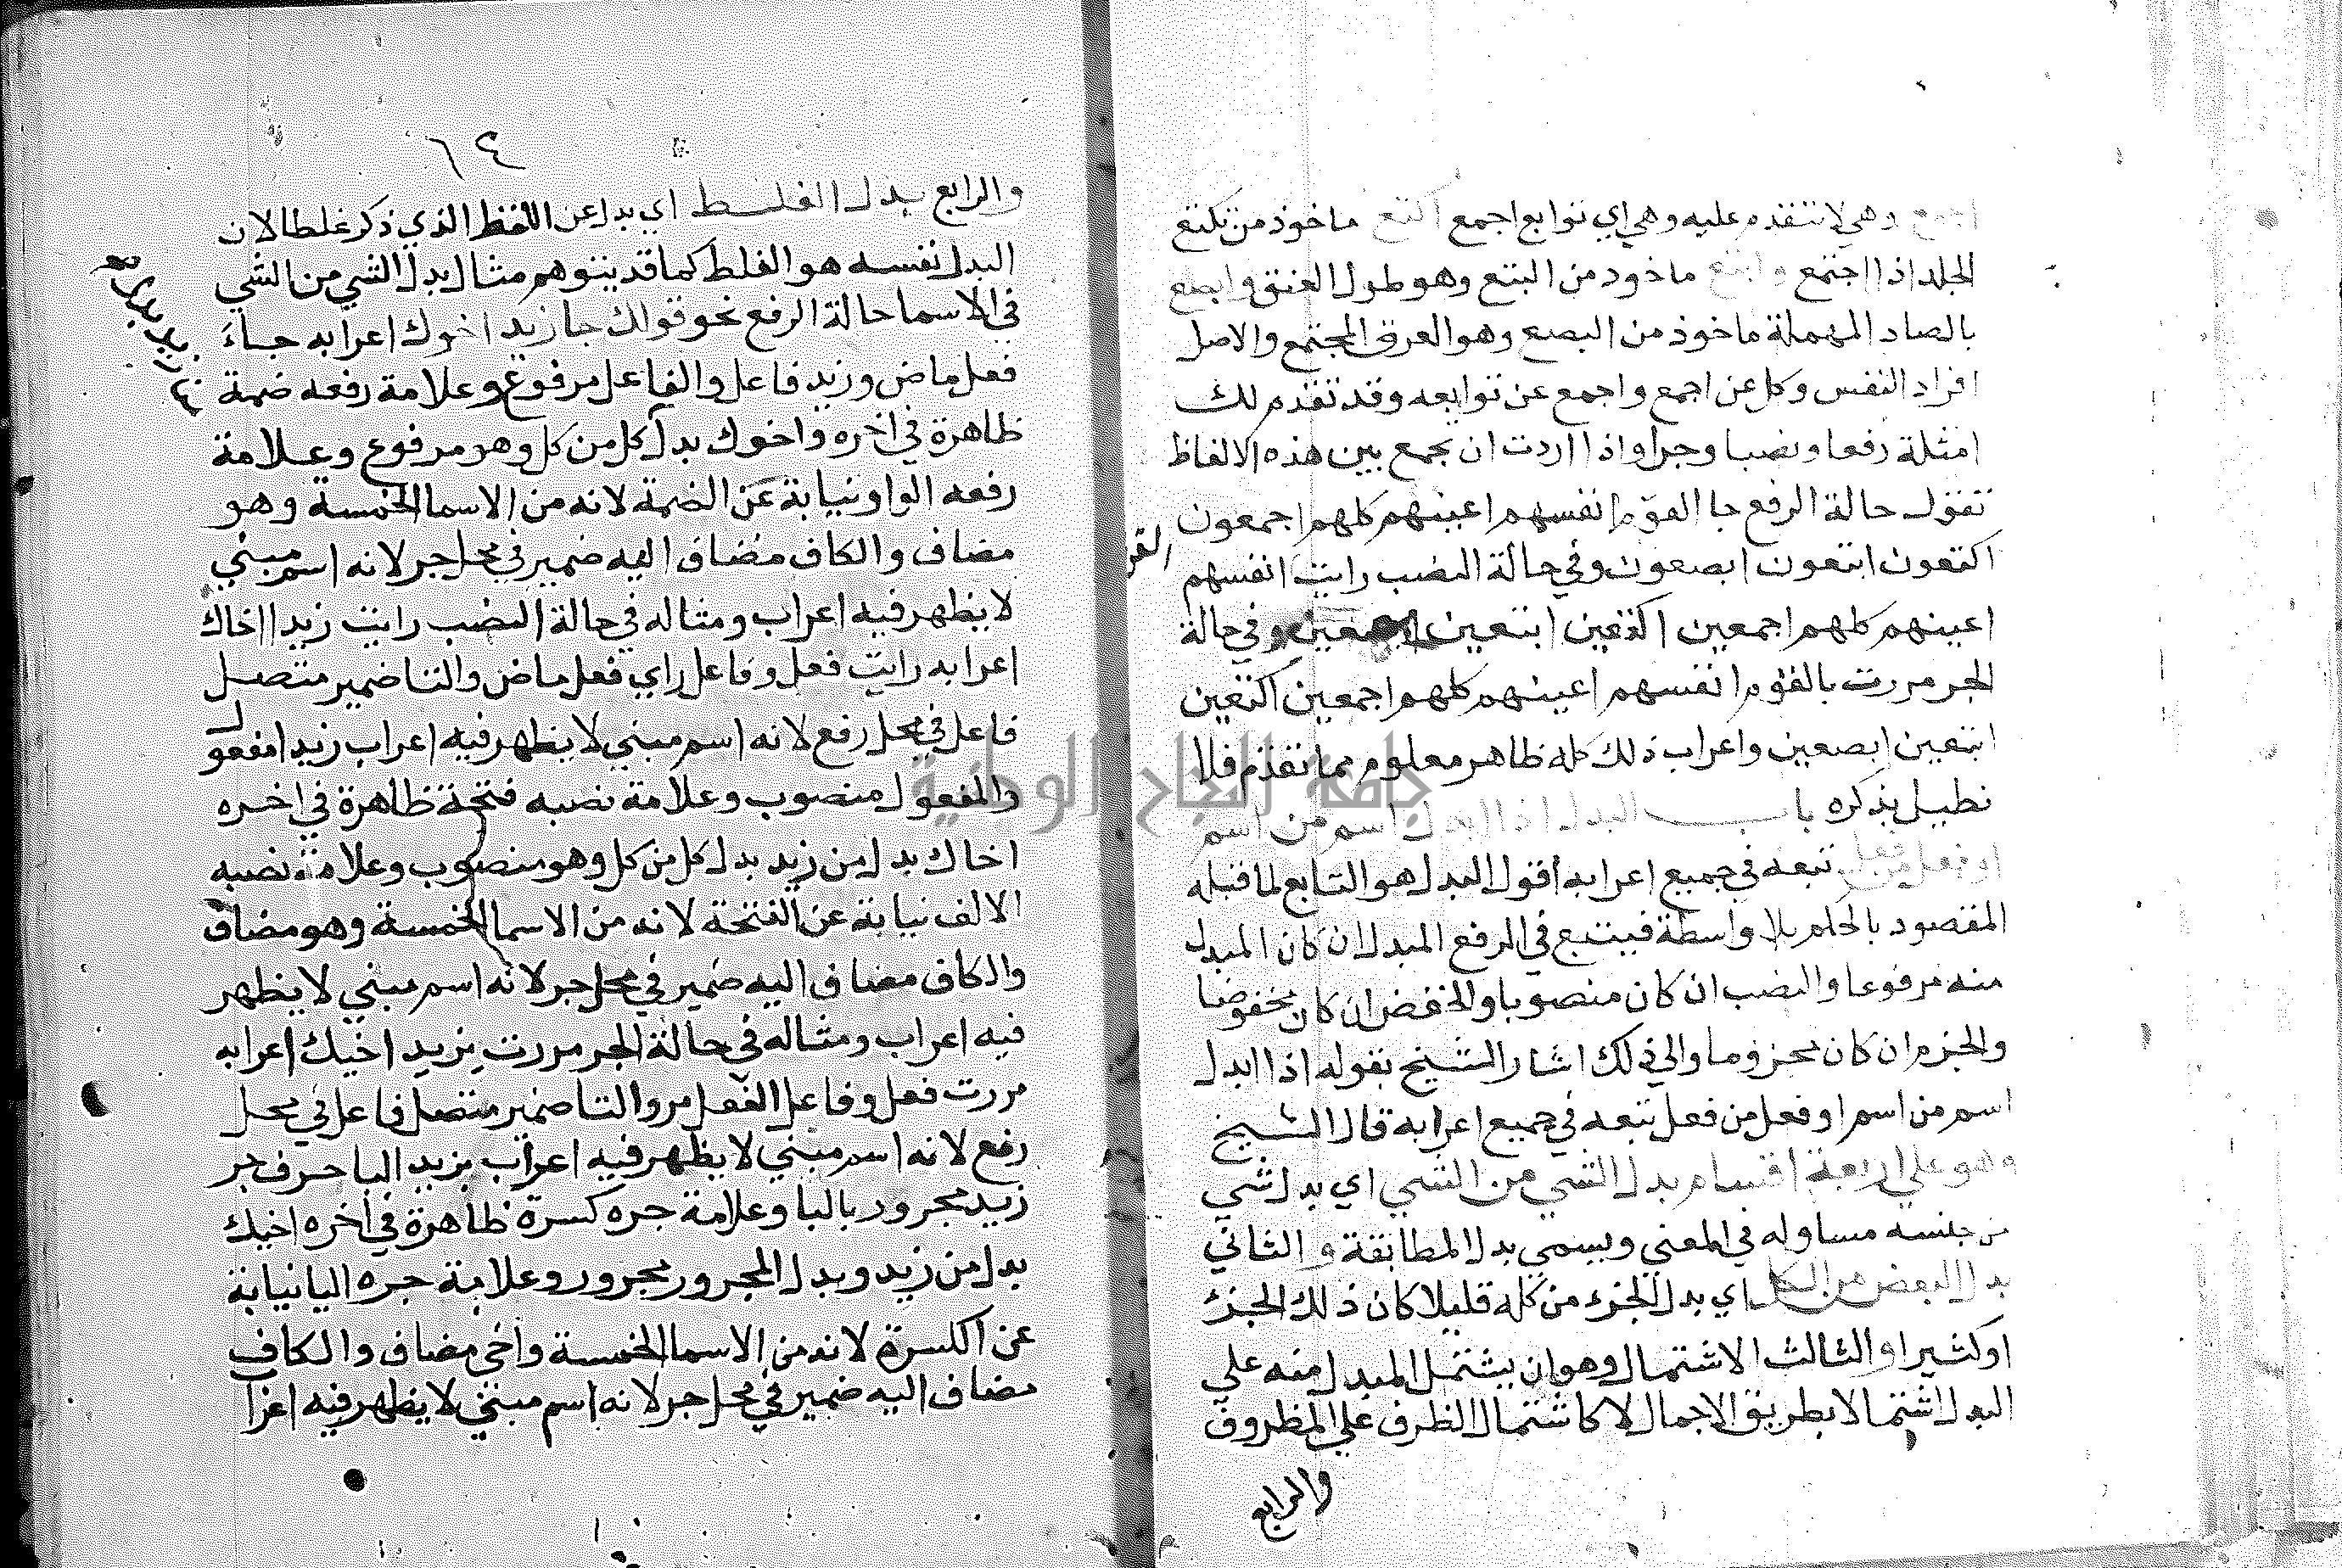 اجمع وهي لا تتقدم عليه وهي اي توابع اجمع اكتع ماخوذ من تكتع
الجلد اذا اجتمع وابتع ماخوذ من البتع وهو طول العنق وابصع
بالصاد المهملة ماخوذ من البصع وهو العرق المجتمع والاصل
افراد النفس وكل عن اجمع واجمع عن توابعه وقد تقدم لك
امثلة رفعا ونصبا وجرا واذا اردت ان تجمع بين هذه الالفاظ
تقول حالة الرفع جا القوم انفسهم اعينهم كلهم اجمعون
اكتعون ابتعون ابصعون وفي حالة النصب رايت انفسهم
القو
اعينهم كلهم اجمعين اكتعين ابتعين ابصعين وفي حالة
الجر مررت بالقوم انفسهم اعينهم كلهم اجمعين اكتعين
ابتعين ابصعين واعراب ذلك كله ظاهر معلوم مما تقدم فلا
نطيل بذكره باب البدل اذا ابدل اسم من اسم
او فعل من فعل تبعه في جميع اعرابه اقول البدل هو التابع لما قبله
المقصود بالحكم بلا واسطة فيتبع في الرفع المبدل ان كان المبدل
منه مرفوعا والنصب ان كان منصوبا والخفض ان كان مخفوضا
والجزم ان كان مجزوما والي ذلك اشار الشيخ بقوله اذا ابدل
اسم من اسم او فعل من فعل تبعه في جميع اعرابه قال الشيخ
وهو علي اربعة اقسام بدل الشي من الشي اي بدل شي
من جنسه مساو له في المعني ويسمي بدل المطابقة والثاني
بدل البعض من الكل اي بدل الجزء من كله قليلا كان ذلك الجزء
او كثيرا والثالث الاشتمال وهو ان يشتمل المبدل منه علي
البدل اشتمالا بطريق الاجمال لا كاشتمال الظرف علي المظروف
والرابع
١٤
والرابع بدل الغلط اي بدل عن اللفظ الذي ذكر غلطا لا ان
البدل نفسه هو الغلط كما قد يتوهم مثال بدل الشي من الشي
في الاسما حالة الرفع نحو قولك جا زيد اخوك اعرابه جاء
فعل ماض وزيد فاعل والفاعل مرفوع وعلامة رفعه ضمة
ظاهرة في اخره واخوك بدل كل من كل وهو مرفوع وعلامة
رفعه الواو نيابة عن الضمة لانه من الاسما الخمسة وهو
مضاف والكاف مضاف اليه ضمير في محل جر لانه اسم مبني
لا يظهر فيه اعراب ومثاله في حالة النصب رايت زيدا اخاك
اعرابه رايت فعل وفاعل راي فعل ماض والتا ضمير متصل
فاعل في محل رفع لانه اسم مبني لا يظهر فيه اعراب زيدا مفعول
والمفعول منصوب وعلامة نصبه فتحة ظاهرة في اخره
اخاك بدل من زيد بدل كل من كل وهو منصوب وعلامة نصبه
الالف نيابة عن الفتحة لانه من الاسما الخمسة وهو مضاف
والكاف مضاف اليه ضمير في محل جر لانه اسم مبني لا يظهر
فيه اعراب ومثاله في حالة الجر مررت بزيد اخيك اعرابه
مررت فعل وفاعل الفعل مر والتا ضمير متصل فاعل في محل
رفع لانه اسم مبني لا يظهر فيه اعراب بزيد البا حرف جر
زيد مجرور بالبا وعلامة جره كسرة ظاهرة في اخره اخيك
بدل من زيد وبدل المجرور مجرور وعلامة جره اليا نيابة
عن الكسرة لانه من الاسما الخمسة واخي مضاف والكاف
مضاف اليه ضمير في محل جر لانه اسم مبني لا يظهر فيه اعرا
جامعة النجاح الوطنية